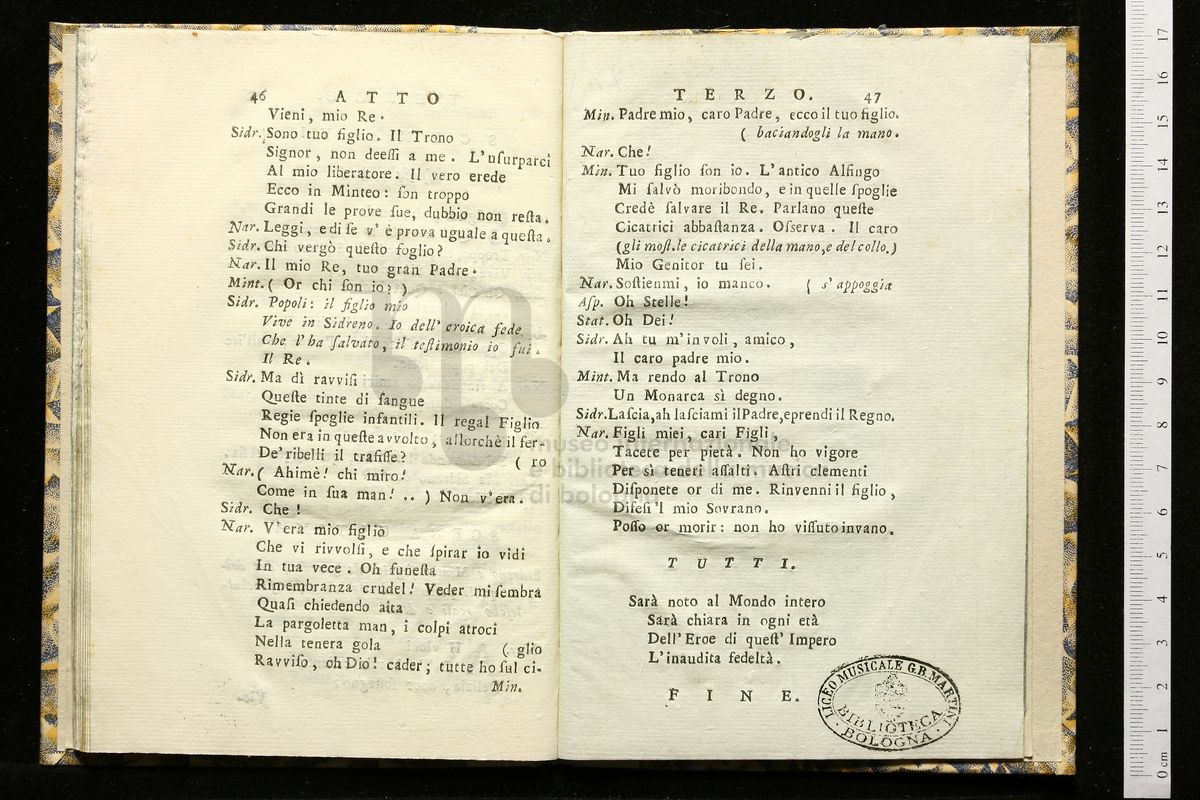 46 ATTO
Vieni, mio Re.
Sidr. Sono tuo figlio. Il Trono
Signor, non deeſſi a me. L'uſurparci
Al mio liberatore. Il vero erede
Ecco in Minteo: ſon troppo
Grandi le prove ſue, dubbio non reſta.
Nar. Leggi, e di ſe v' è prova uguale a queſta.
Sidr. Chi vergò queſto foglio?
Nar. Il mio Re, tuo gran Padre.
Mint. ( Or chi ſon io? )
Sidr. Popoli: il figlio mio
Vive in Sidreno. Io dell' eroica fede
Che l' ha ſalvato, il teſtimonio io fui.
Il Re.
Sidr. Ma dì ravviſi
Queſte tinte di ſangue
Regie ſpoglie infantili. Il regal Figlio
Non era in queſte avvolto, allorchè il fer-
De' ribelli il trafiſſe? ( ro
Nar. ( Ahimè! chi miro!
Come in ſua man! .. ) Non v'era.
Sidr. Che!
Nar. V'era mio figlio
Che vi rivvolſi, e che ſpirar io vidi
In tua vece. Oh funeſta
Rimembranza crudel! Veder mi ſembra
Quaſi chiedendo aita
La pargoletta man, i colpi atroci
Nella tenera gola ( glio
Ravviſo, oh Dio! cader; tutte ho ſul ci-
Min.
TERZO. 47
Min. Padre mio, caro Padre, ecco il tuo figlio.
( baciandogli la mano.
Nar. Che!
Min. Tuo figlio ſon io. L'antico Alſingo
Mi ſalvò moribondo, e in quelle ſpoglie
Credè ſalvare il Re. Parlano queſte
Cicatrici abbaſtanza. Oſſerva. Il caro
(gli moſt. le cicatrici della mano, e del collo.)
Mio Genitor tu ſei.
Nar. Soſtienmi, io manco. ( s' appoggia
Aſp. Oh Stelle!
Stat. Oh Dei!
Sidr. Ah tu m'involi, amico,
Il caro padre mio.
Mint. Ma rendo al Trono
Un Monarca sì degno.
Sidr. Laſcia, ah laſciami il Padre, e prendi il Regno.
Nar. Figli miei, cari Figli,
Tacete per pietà. Non ho vigore
Per sì teneri aſſalti. Aſtri clementi
Diſponete or di me. Rinvenni il figlio,
Difeſi 'l mio Sovrano.
Poſſo or morir: non ho viſſuto invano.
TUTTI.
Sarà noto al Mondo intero
Sarà chiara in ogni età
Dell' Eroe di queſt' Impero
L'inaudita fedeltà.
FINE.
LICEO MUSICALE G.B. MARTINI
BIBLIOTECA
BOLOGNA
museo internazionale
e biblioteca della musica
di bologna
0 cm 1 2 3 4 5 6 7 8 9 10 11 12 13 14 15 16 17